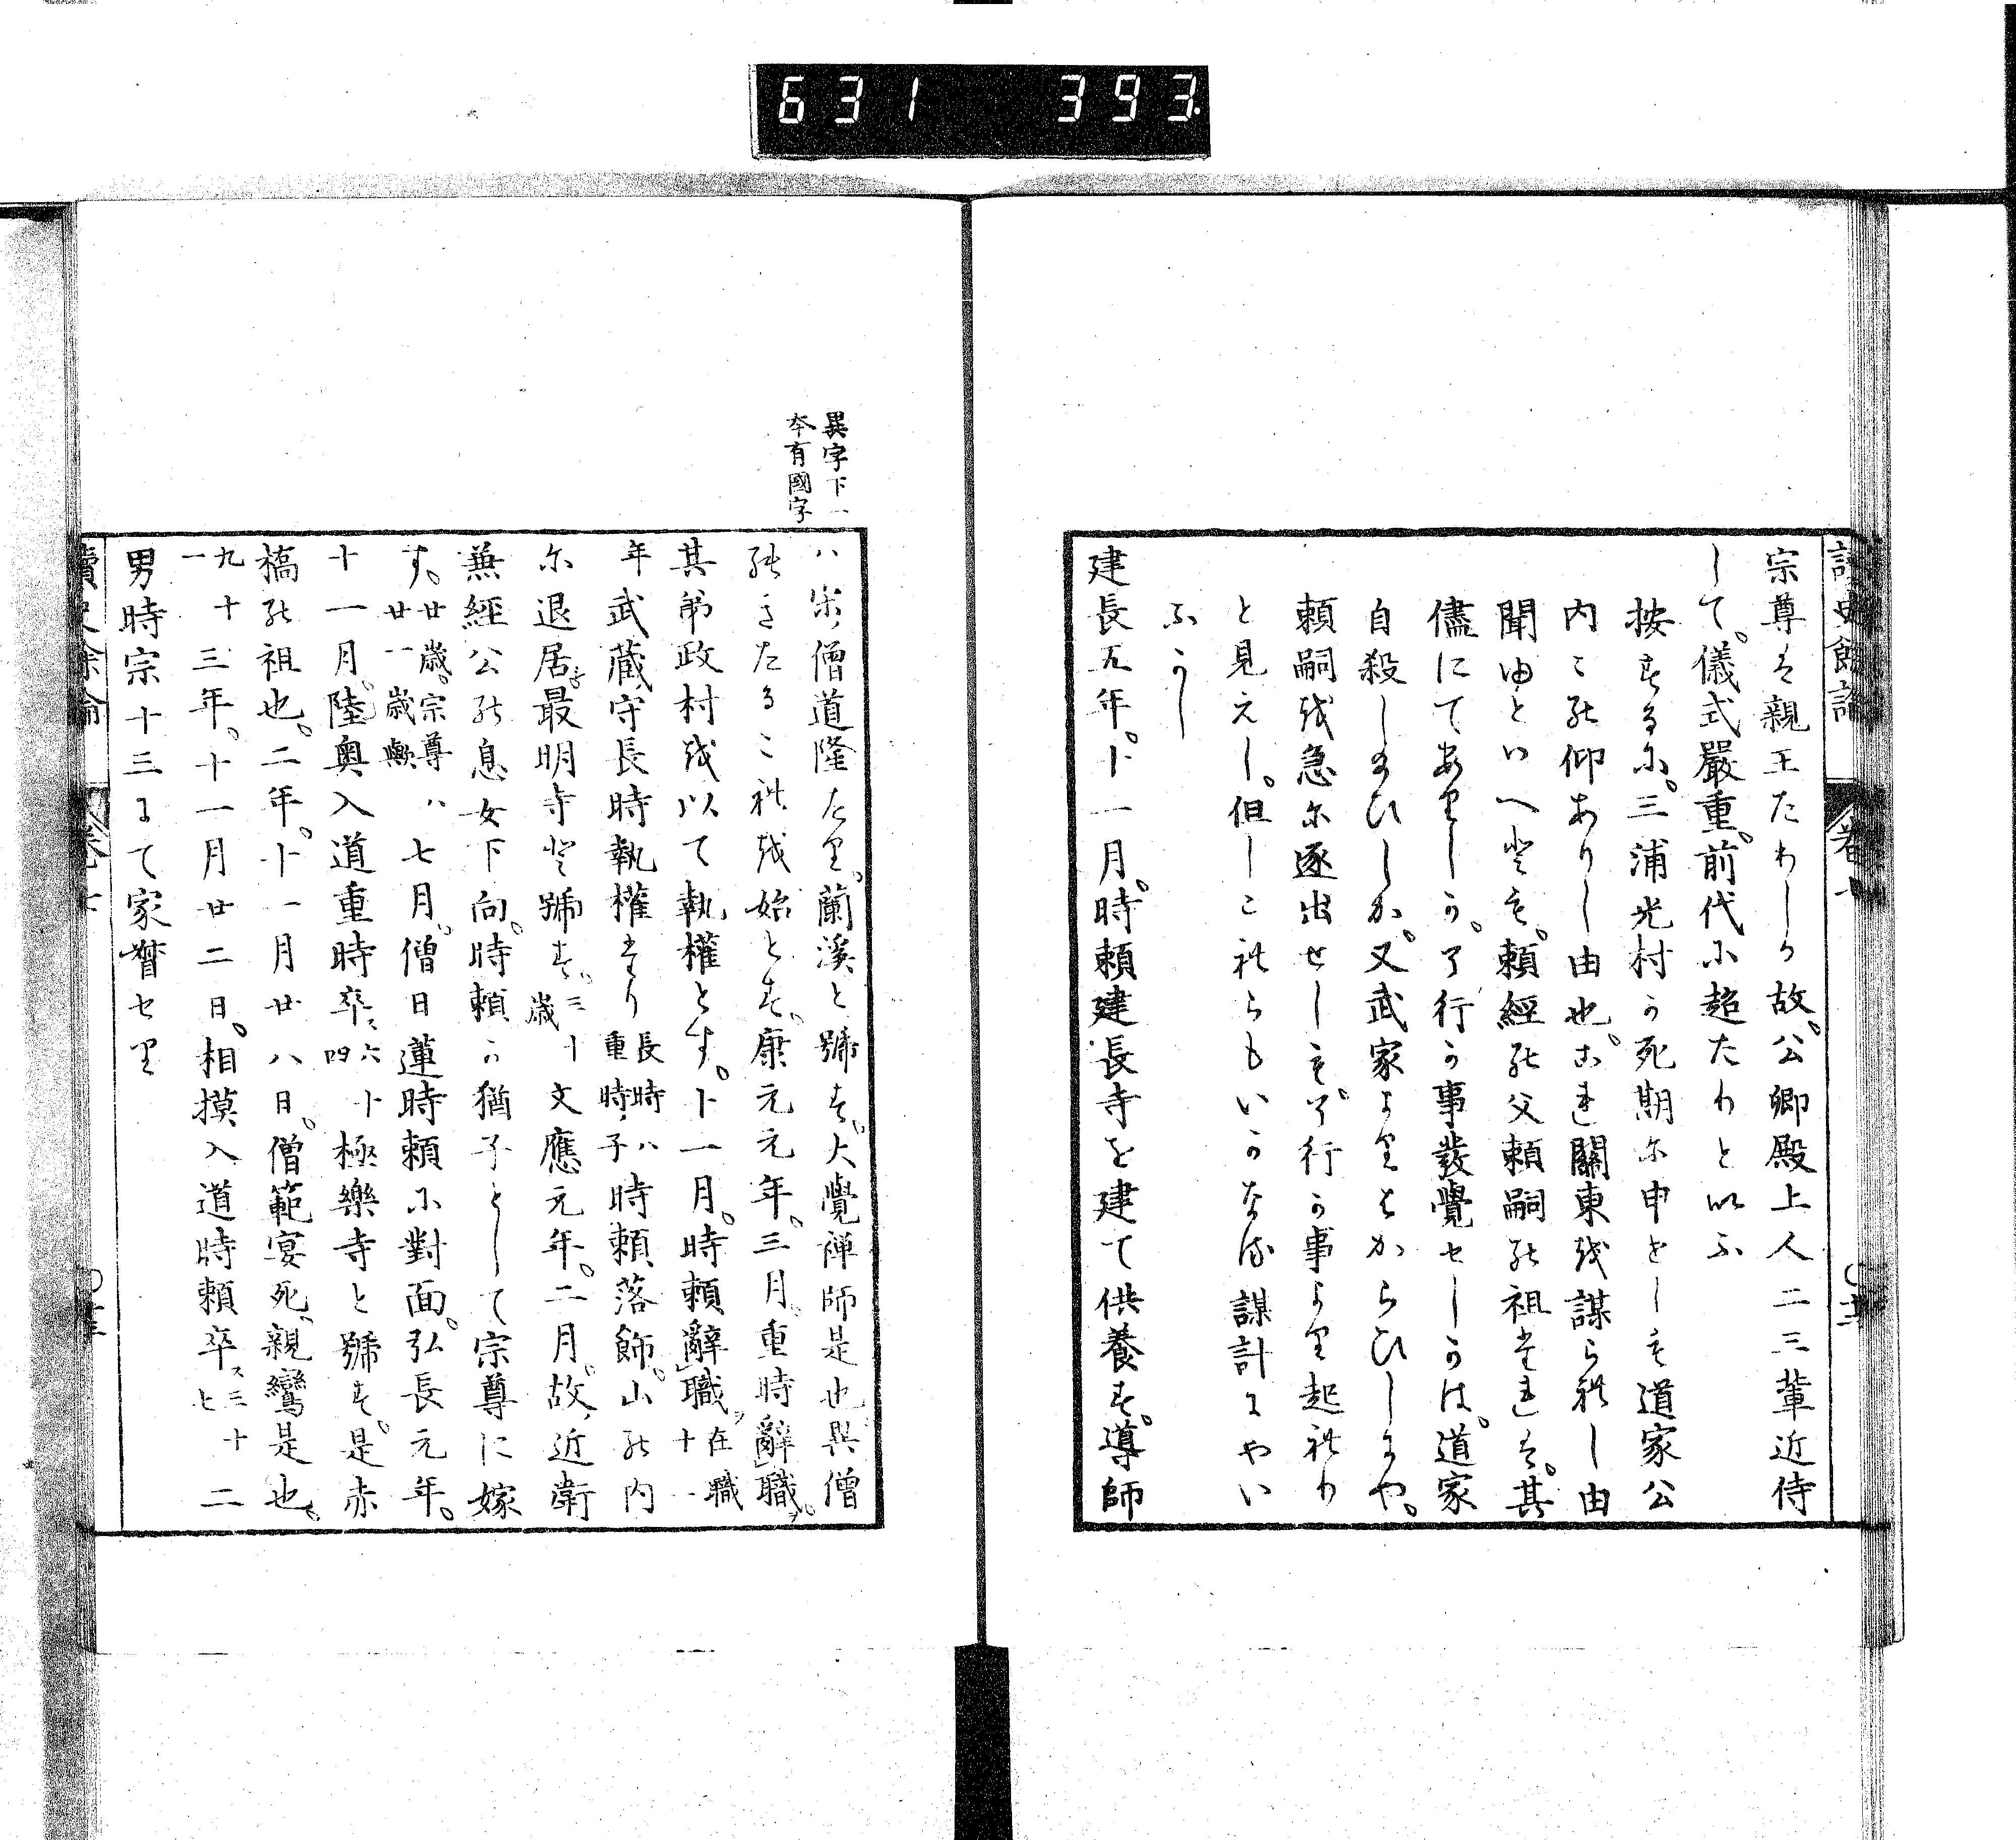 631 393
宗尊は親王たりしか故。公卿殿上人二三輩近侍
して。儀式嚴重。前代に超たりと以ふ
按するに。三浦光村か死期に申せしも道家公
内々能仰ありし由也。これ關東越謀られし由
聞ゆといへとも。頼經能父頼嗣能祖なれは。其
儘にてありしか。了行か事發覺せしかは。道家
自殺し給ひしか。又武家よりはからひしにや。
頼嗣越急に逐出せしも。了行か事より起れり
と見えし。但しこれらもいかなる謀計にやい
ふかし
建長五年。十一月。時頼建長寺を建て供養す。導師
異字下一
本有國字
八宋僧道隆なり。蘭溪と號す。大覺禅師是也異僧
能きたるこれ越始とす。康元元年。三月。重時辭職。
其弟政村越以て執權とす。十一月。時頼辭職。在職十一
年武藏守長時執權たり長時ハ重時子時頼落飾。山能内
尓退居。最明寺と號す。三十歳文應元年。二月。故近衛
兼經公能息女下向。時頼か猶子として宗尊に嫁
す。廿歳。宗尊ハ廿一歳歟七月。僧日蓮時頼に對面。弘長元年。
十一月。陸奥入道重時卒六十四極樂寺と號す。是赤
橋能祖也。二年。十一月廿八日。僧範宴死。親鸞是也。
九十一三年。十一月廿二日。相摸入道時頼卒三十七二
男時宗十三にて家督せり
讀史餘論 卷七